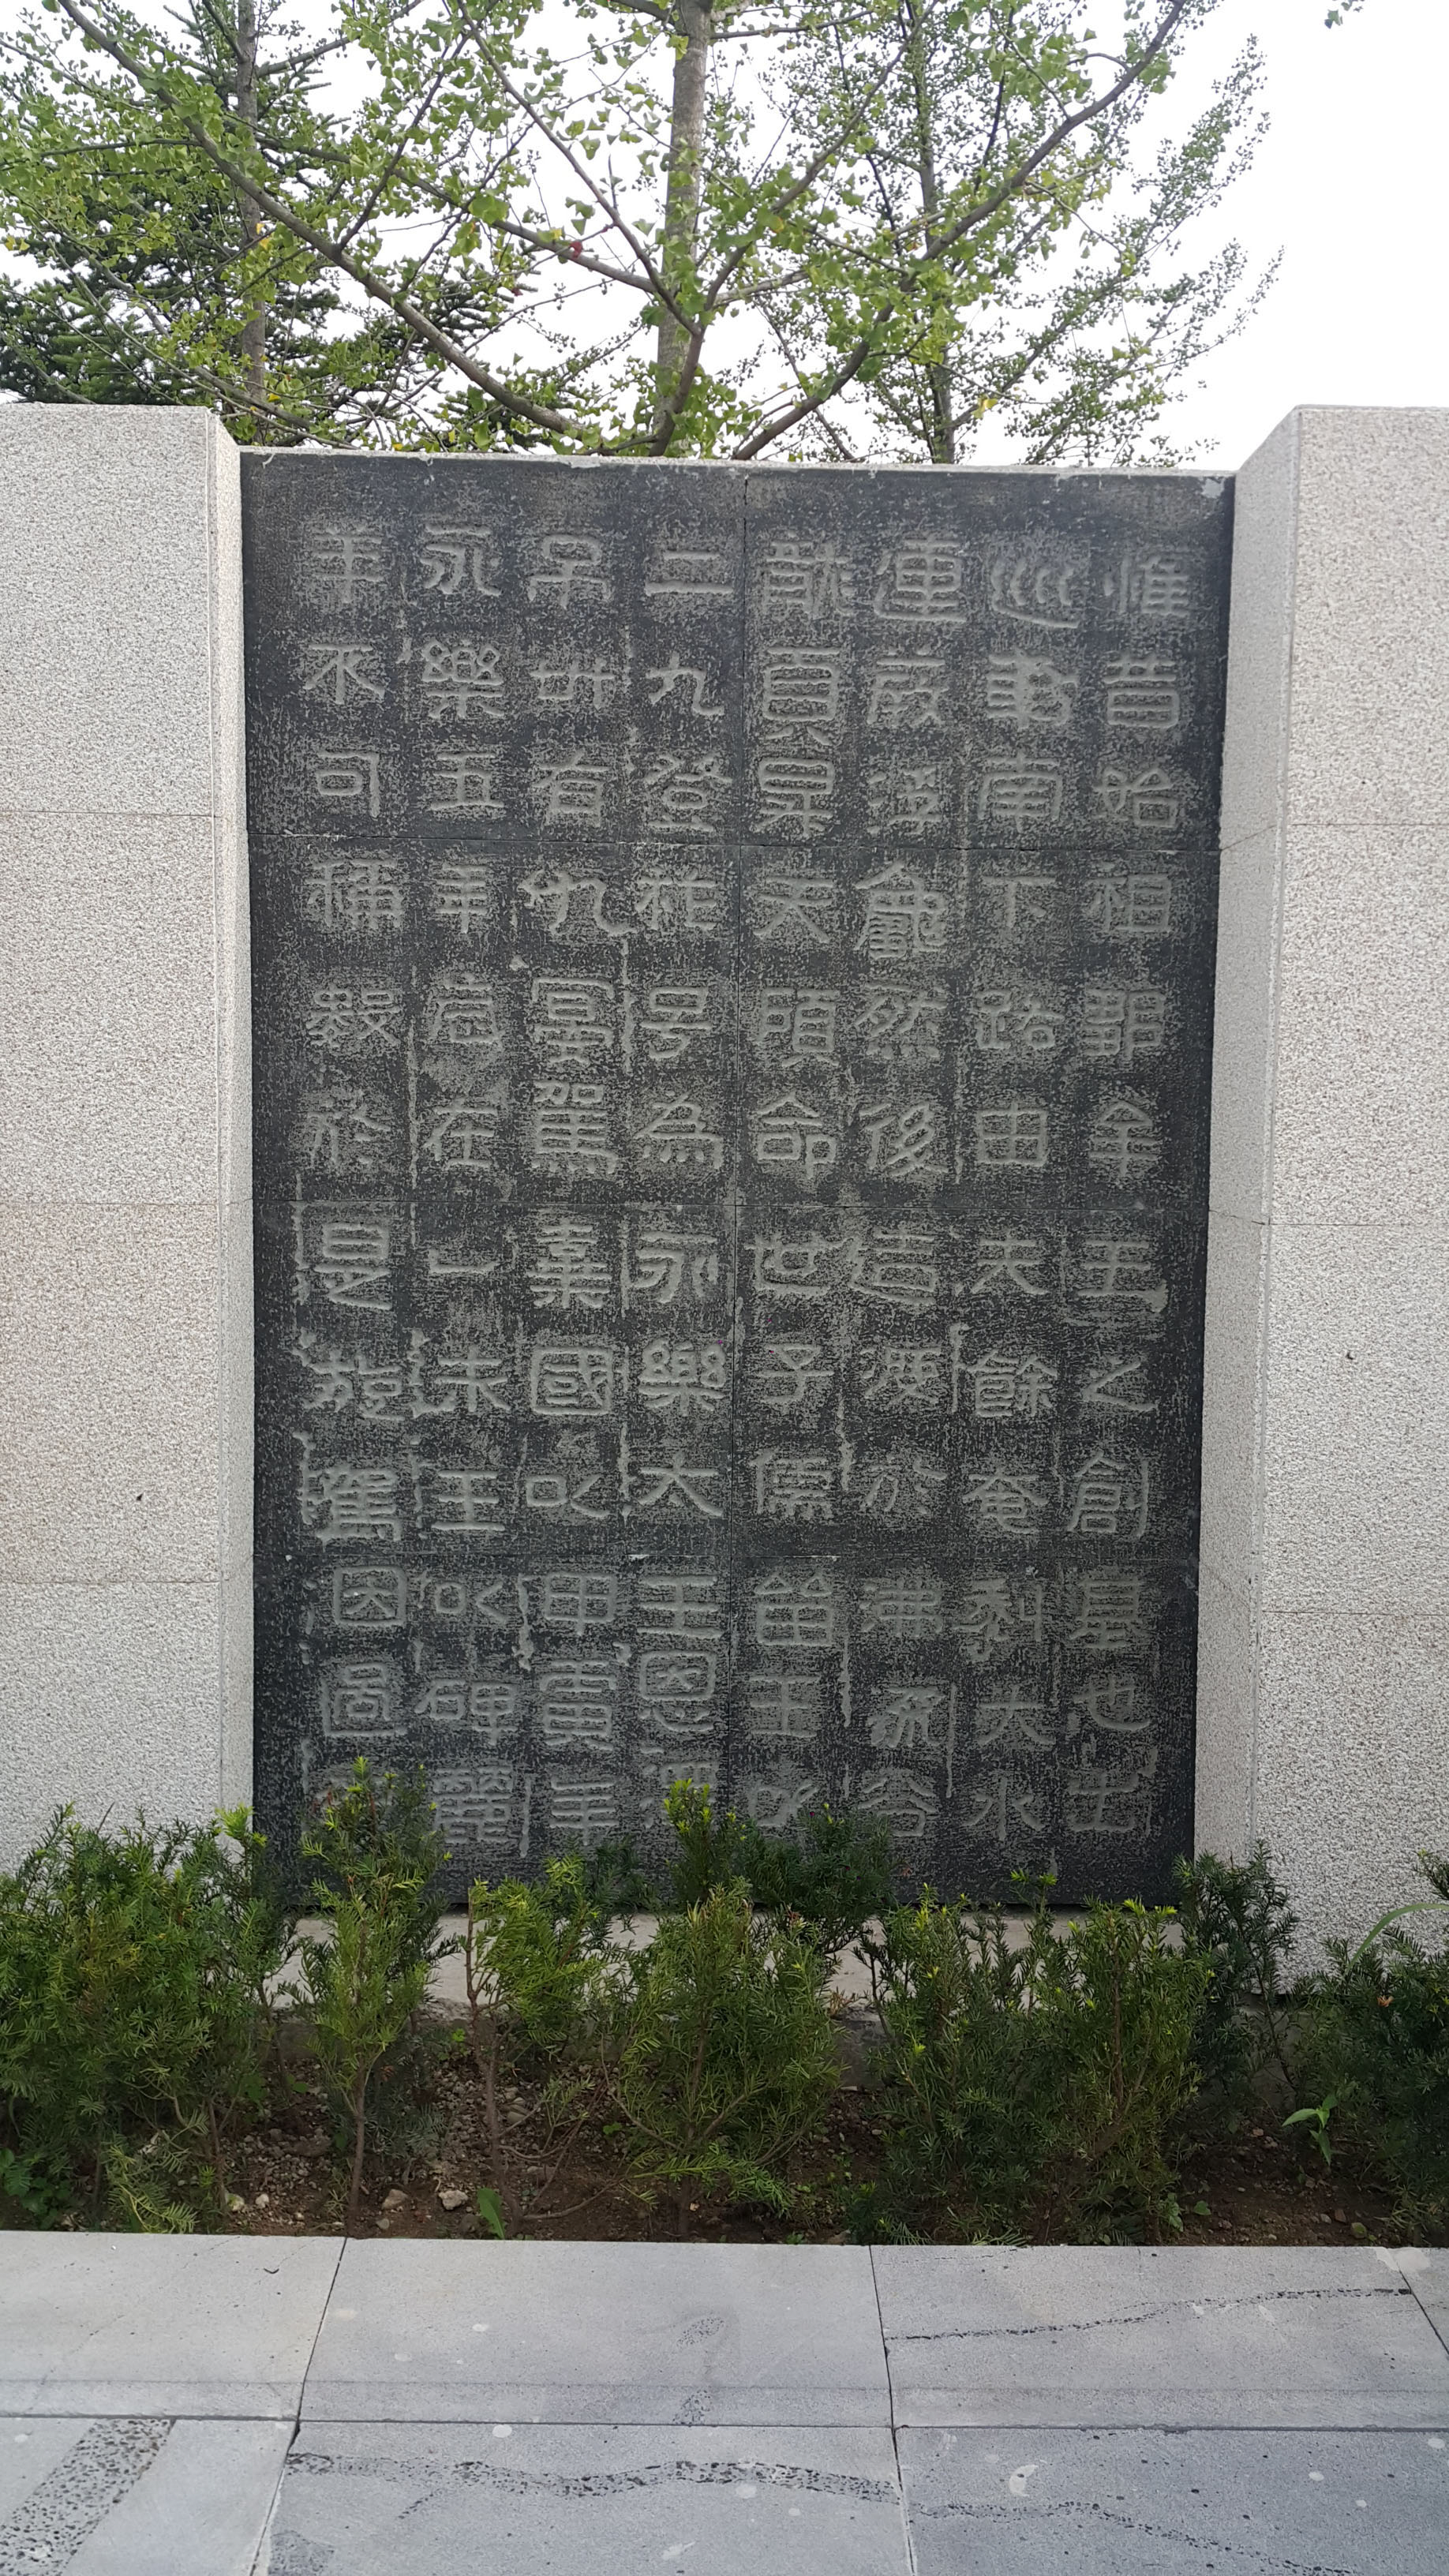 惟昔始祖鄒牟王之創基也出
巡車南下路由夫餘奄利大水
連葭浮龜然後造渡於沸流谷
龍頁昇天顧命世子儒留王以
二九登祚号為永樂大王恩澤
弔卅有九宴駕棄國以甲寅年
永樂五年歲在乙未王以碑麗
羊不可稱數於是旋駕因過